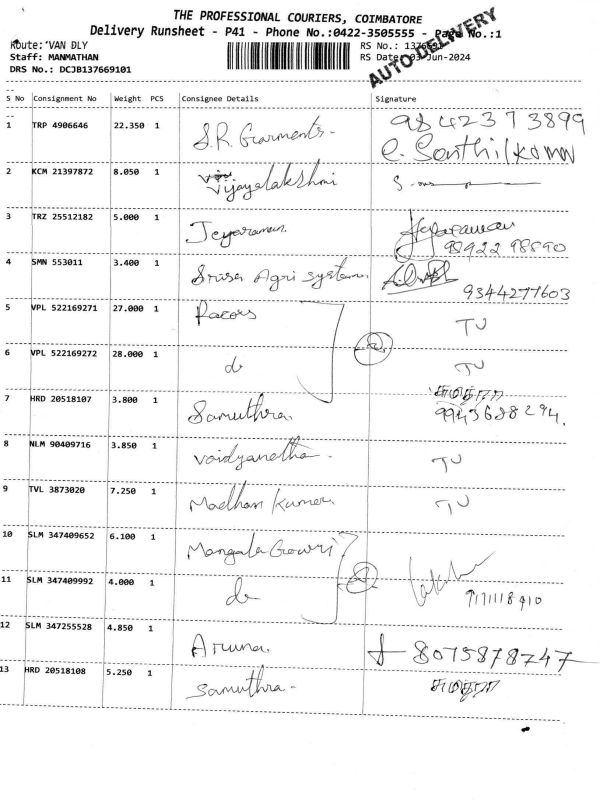 THE PROFESSIONAL COURIERS, COIMBATORE
Delivery Runsheet - P41 - Phone No.:0422-3505555 - Page No.:1
Route: VAN DLY RS No.:
Staff: MANMATHAN RS Date: 03-Jun-2024
DRS No.: DCJB137669101
AUTO DELIVERY
S No Consignment No Weight PCS Consignee Details Signature
1 TRP 4906646 22.350 1 S.R. Garments- 9842373899
C. Senthilkumar
2 KCM 21397872 8.050 1 Vijayalakshmi
3 TRZ 25512182 5.000 1 Jeyaraman. Jeyaraman
98922 98890
4 SMN 553011 3.400 1 Agri System
9344277603
5 VPL 522169271 27.000 1 Pacors TU
6 VPL 522169272 28.000 1 do TU
7 HRD 20518107 3.800 1 Samuthra. 9943688294.
8 NLM 90409716 3.850 1 Vaidyanatha- TU
9 TVL 3873020 7.250 1 Madhan Kumar. TU
10 SLM 347409652 6.100 1 Mangala Gowri 2
11 SLM 347409992 4.000 1 do
12 SLM 347255528 4.850 1 Aruna. 8075878747
13 HRD 20518108 5.250 1 Samuthra-